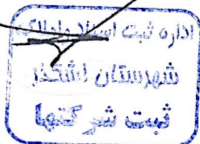 اداره ثبت اسناد و املاک
شهرستان اشکذر
ثبت شرکتها